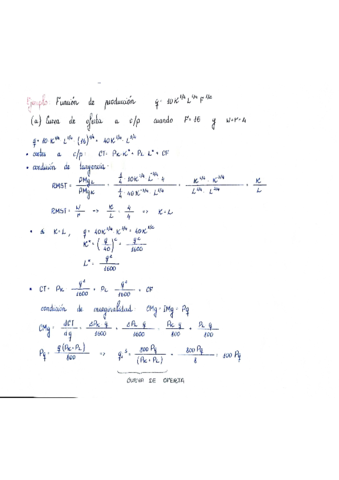 Ejemplo: Función de producción q = 10 K^1/4 L^1/4 F^1/2
(a) Curva de oferta a c/p cuando F = 16 y w=r=4
q = 10 K^1/4 L^1/4 (16)^1/2 = 40 K^1/4 · L^1/4
• costes a c/p: CT = PK · K* + PL · L* + CF
• condición de tangencia:
RMST = PMgL / PMgK = K^1/4 · K^3/4 / L^1/4 L^3/4 = K / L
RMST = w / r => K / L = 4 / 4 => K = L
• si K=L, q = 40 K^1/4 K^1/4 = 40 K^1/2
K* = (q / 40)^2 = q^2 / 1600
L* = q^2 / 1600
• CT = PK · q^2 / 1600 + PL · q^2 / 1600 + CF
condición de marginalidad CMg = IMg = Pq
CMg = ∂CT / ∂q = 2PK · q / 1600 + 2PL · q / 1600 = PK · q / 800 + PL · q / 800
Pq = q (PK + PL) / 800 => q^s = 800 Pq / (PK + PL) = 800 Pq / 8 = 100 Pq
CURVA DE OFERTA